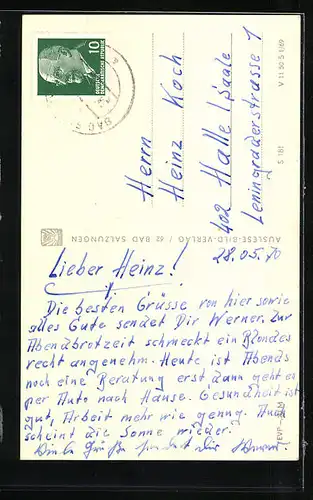 10
DEUTSCHE
DEMOKRATISCHE REPUBLIK
BAD S
Herrn
Heinz Koch
402 Halle / Saale
Leningraderstrasse 1
V 11 50 S 1/69
S 181
AUSLESE-BILD-VERLAG / 62 BAD SALZUNGEN
28.05.70
Lieber Heinz!
Die besten Grüsse von hier sowie
alles Gute sendet Dir Werner. Zur
Abendbrotzeit schmeckt ein Blondes
recht angenehm. Heute ist Abends
noch eine Beratung erst dann geht es
per Auto nach Hause. Gesundheit ist
gut, Arbeit mehr wie genug. Auch
scheint die Sonne wieder.
Grüße sendet Dir
EVP